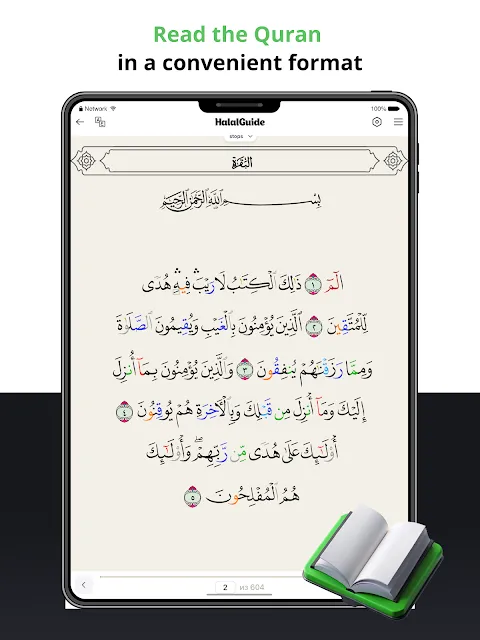 Read the Quran
in a convenient format
Network 100%
HalalGuide
stops
البقرة
بِسْمِ اللَّهِ الرَّحْمَٰنِ الرَّحِيمِ
الٓمٓ ١ ذَٰلِكَ الْكِتَٰبُ لَا رَيْبَ ۛ فِيهِ ۛ هُدًى
لِّلْمُتَّقِينَ ٢ الَّذِينَ يُؤْمِنُونَ بِالْغَيْبِ وَيُقِيمُونَ الصَّلَوٰةَ
وَمِمَّا رَزَقْنَٰهُمْ يُنفِقُونَ ٣ وَالَّذِينَ يُؤْمِنُونَ بِمَآ أُنزِلَ
إِلَيْكَ وَمَآ أُنزِلَ مِن قَبْلِكَ وَبِالْأَخِرَةِ هُمْ يُوقِنُونَ ٤
أُو۟لَٰٓئِكَ عَلَىٰ هُدًى مِّن رَّبِّهِمْ ۖ وَأُو۟لَٰٓئِكَ
هُمُ الْمُفْلِحُونَ ٥
2 из 604